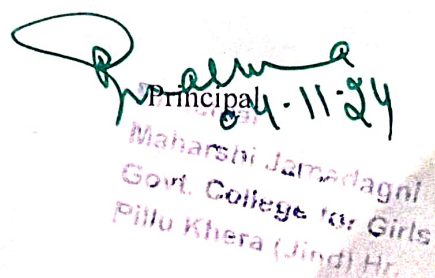 Principal
04-11-24
Principal
Maharshi Jamadagni
Govt. College for Girls
Pillu Khera (Jind) Hr.